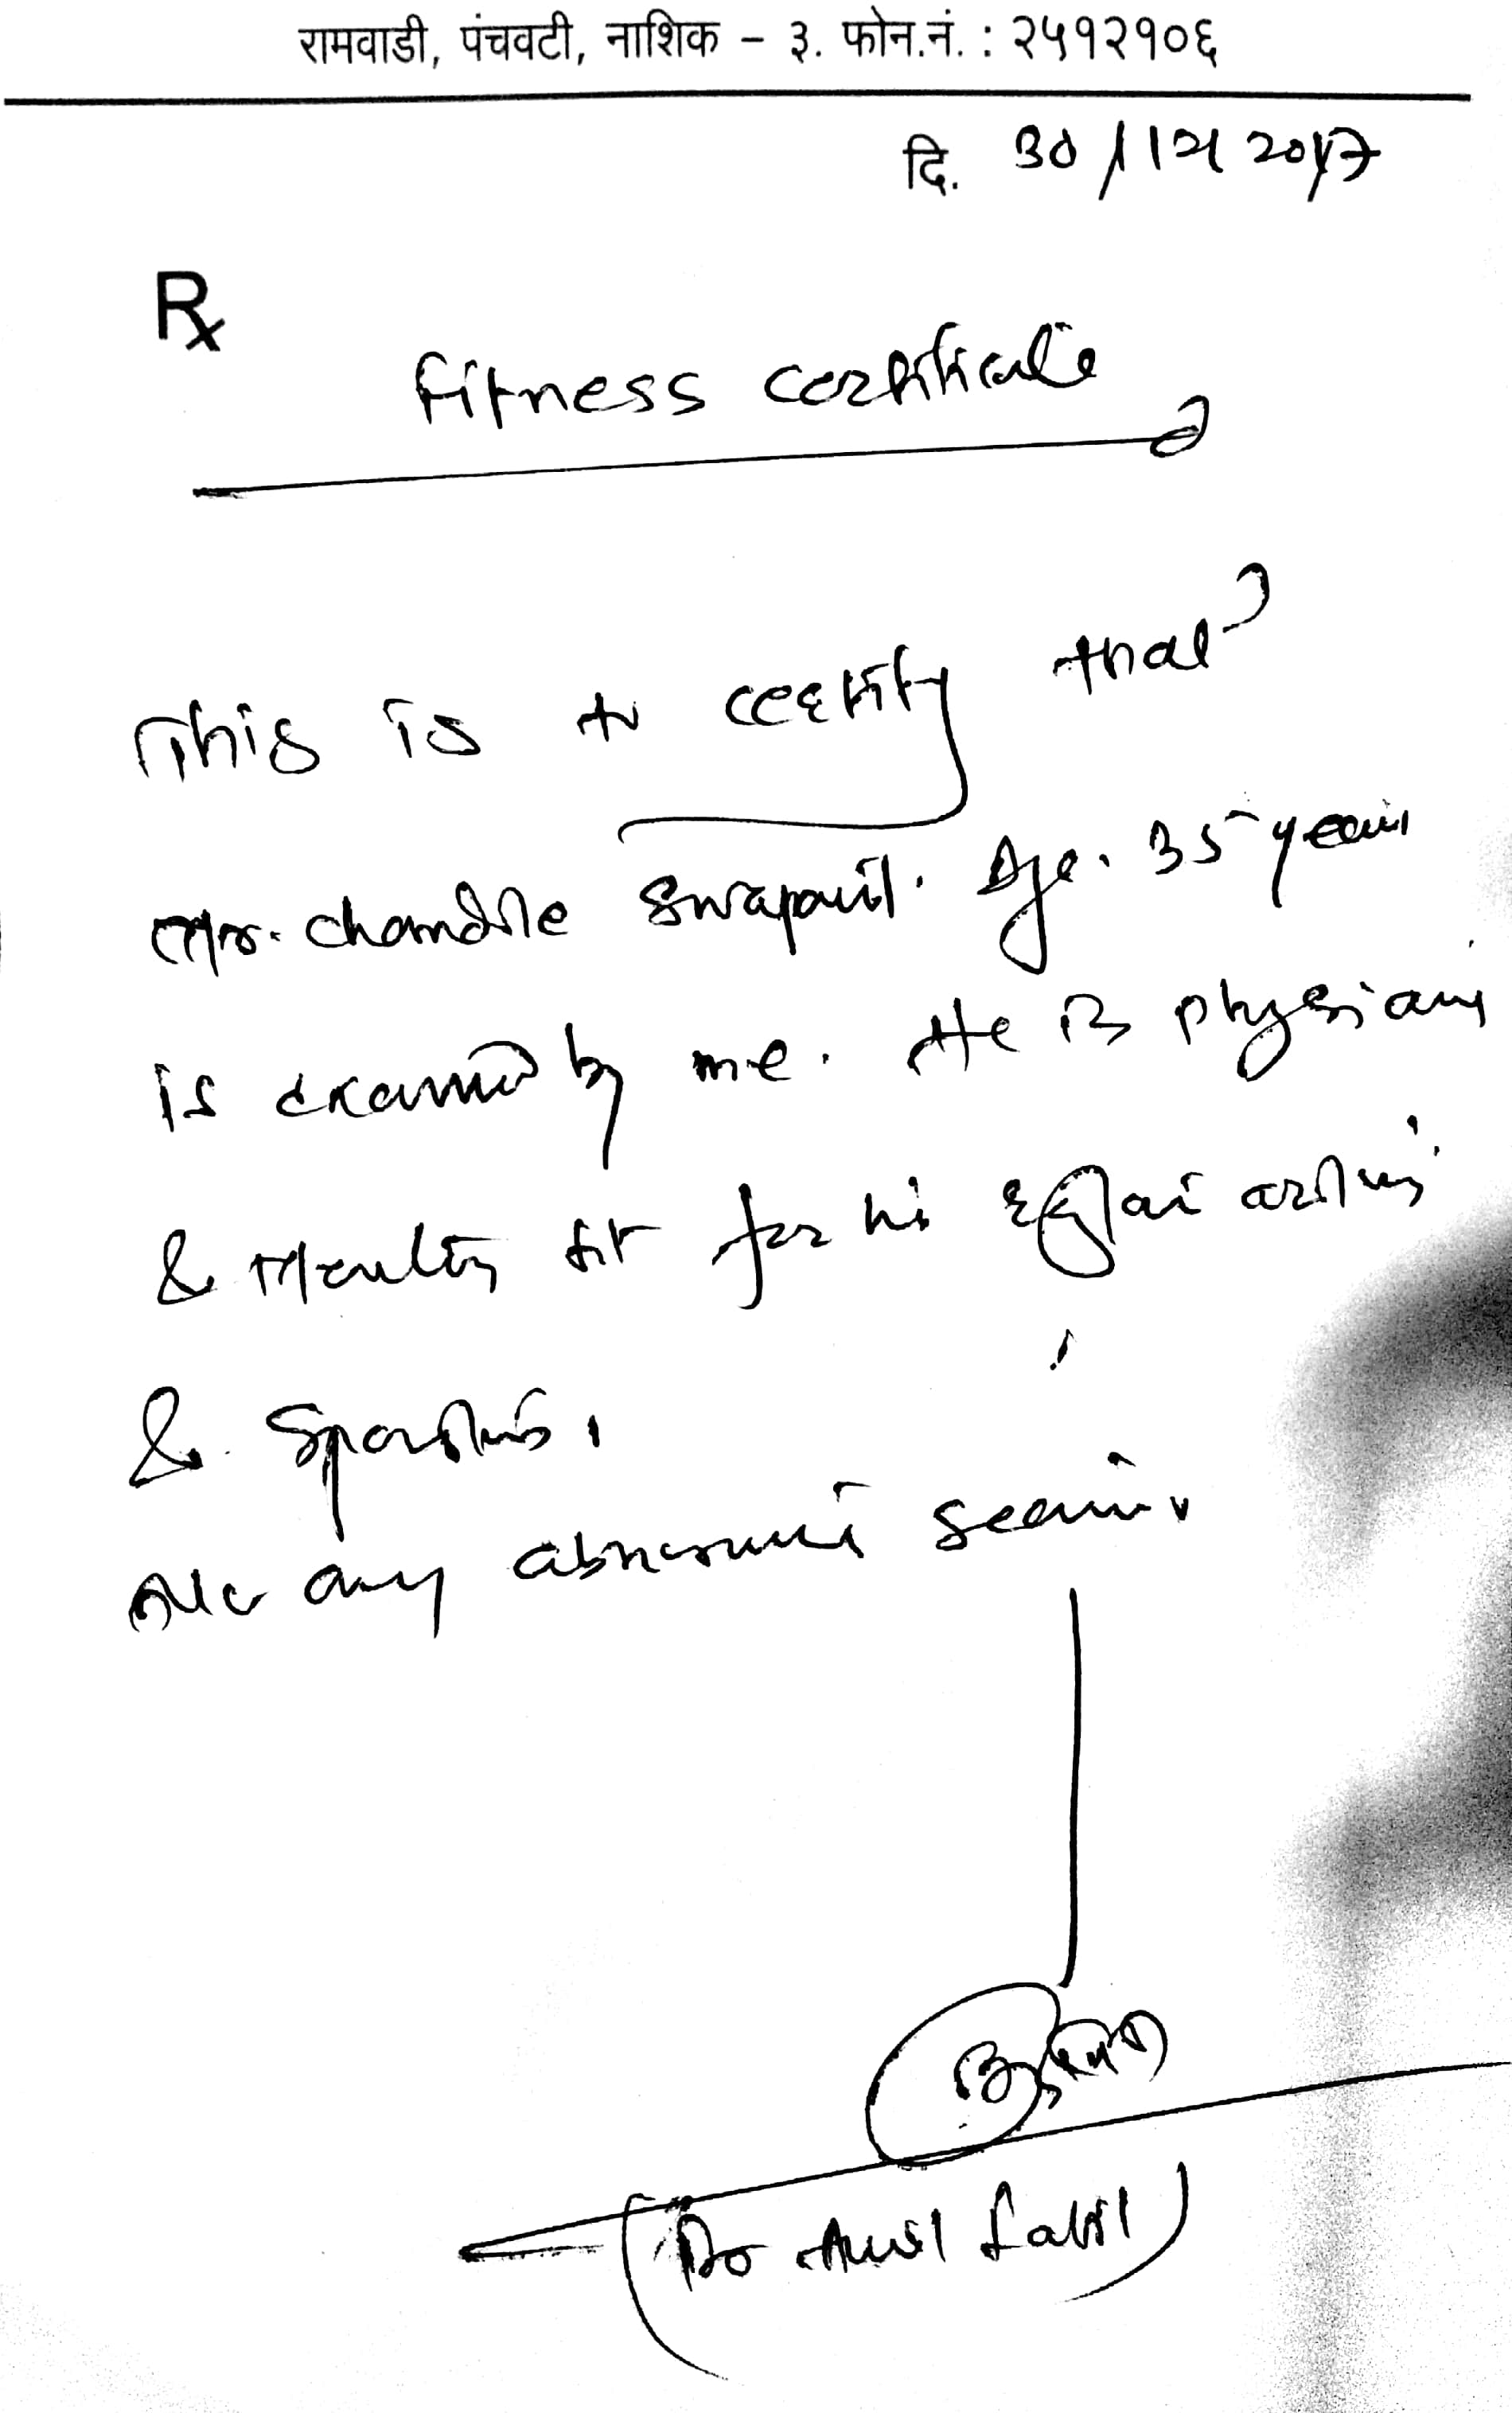 रामवाडी, पंचवटी, नाशिक - ३. फोन.नं. : २५१२१०६
दि. 30/12/2017
Rx
Fitness certificate
This is to certify that
Mr. Chandile Swapnil. Age. 35 years
is examined by me. He is physically
& Mentally fit for his
& Sports.
any abnormal
(Dr Anil Patil)